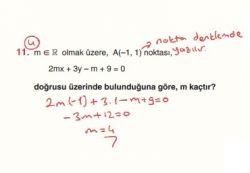 4
nokta denklemde
yazılır.
11. m ∈ ℝ olmak üzere, A(–1, 1) noktası,
2mx + 3y – m + 9 = 0
doğrusu üzerinde bulunduğuna göre, m kaçtır?
2m(-1) + 3.1 - m + 9 = 0
-3m + 12 = 0
m = 4